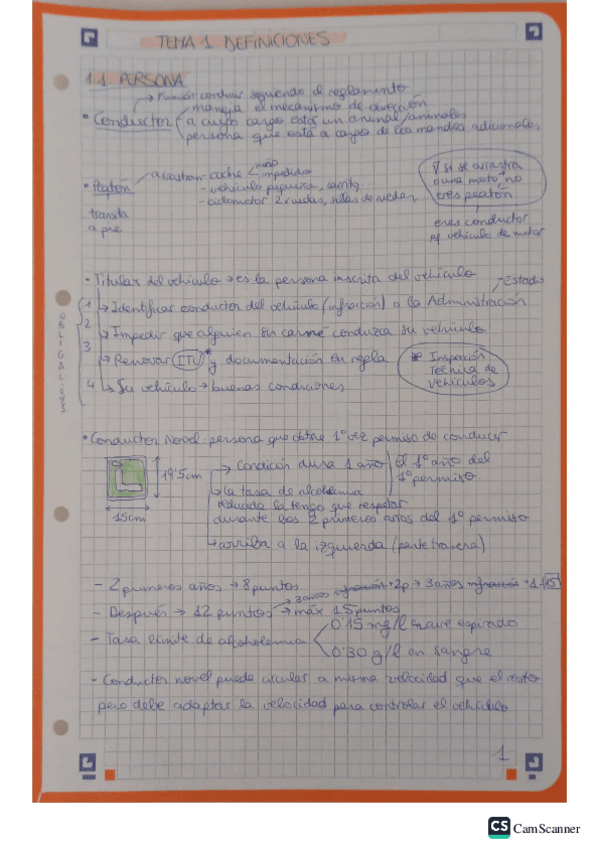 TEMA 1 DEFINICIONES
1.1 PERSONA
→ Función conducir siguiendo el reglamento
maneja el mecanismo de dirección
• Conductor a cuyo cargo está un animal/animales
persona que está a cargo de los mandos adicionales
• Peatón → arrastran coche niño
impedido
- vehículo pequeño, carrito
- ciclomotor 2 ruedas, sillas de ruedas
transita
a pie
si se arrastra
una moto no
eres peatón
eres conductor
vehículo de motor
• Titular del vehículo → es la persona inscrita del vehículo
→ Estado
OBLIGACIONES
1 → Identificar conductor del vehículo (infracción) a la Administración
2 → Impedir que alguien sin carné conduzca su vehículo
3 → Renovar ITV* y documentación en regla
* Inspección
Técnica de
vehículos
4 → Su vehículo → buenas condiciones
• Conductor Novel: persona que obtiene 1º vez permiso de conducir
L
19'5cm
15cm
→ Condición dura 1 año
el 1º año del
1º permiso
→ la tasa de alcoholemia
reducida la tengo que respetar
durante los 2 primeros años del 1º permiso
→ arriba a la izquierda (parte trasera)
- 2 primeros años → 8 puntos
3 años +2p → 3 años +1 15
- Después → 12 puntos → máx 15 puntos
- Tasa límite de alcoholemia 0'15 mg/l aire espirado
0'30 g/l en sangre
- Conductor novel puede circular a misma velocidad que el resto
pero debe adaptar la velocidad para controlar el vehículo
1
CS CamScanner